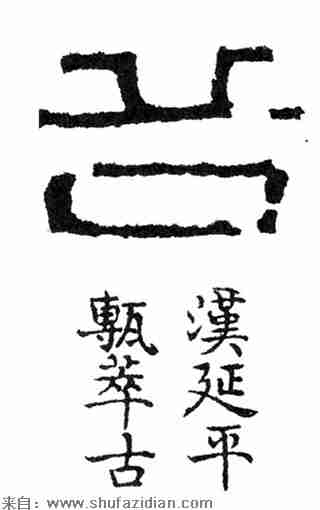 漢延平
甎萃古
来自：www.shufazidian.com